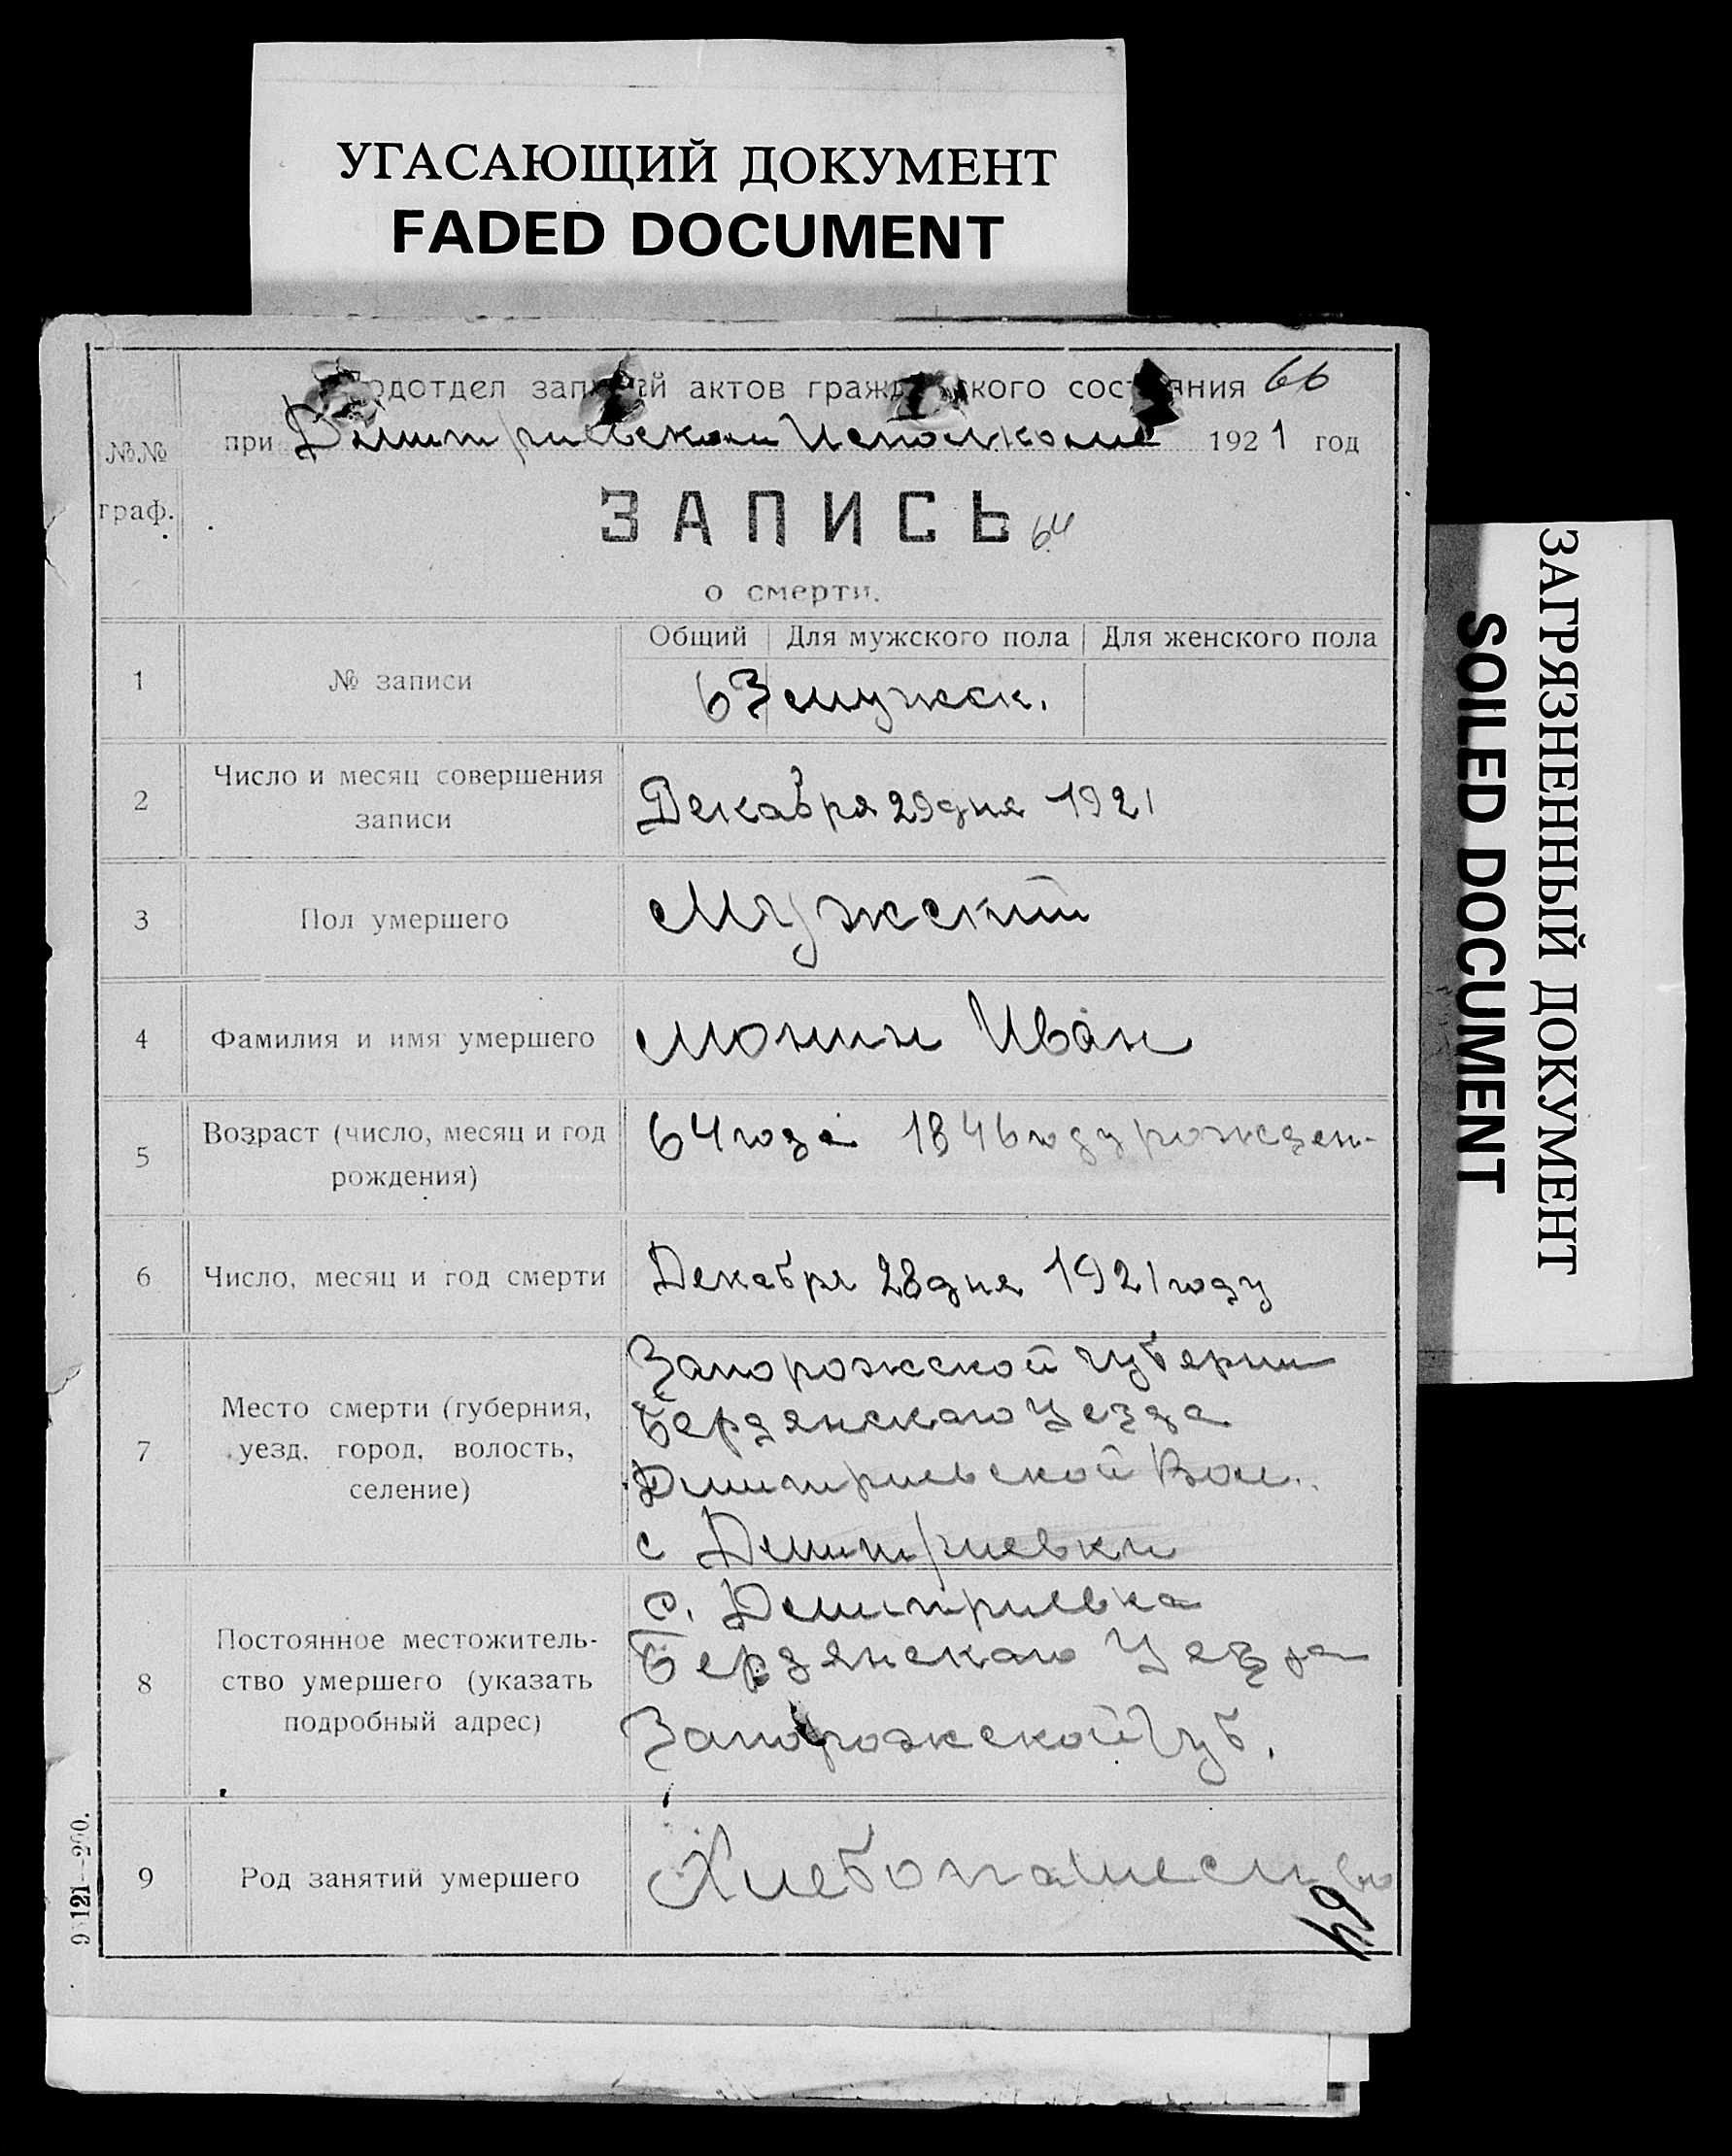 УГАСАЮЩИЙ ДОКУМЕНТ
FADED DOCUMENT
Подотдел записей актов гражданского состояния 66
при Дмитриевском Исполкоме 1921 год
№№
граф.
ЗАПИСЬ 64
о смерти.
Общий Для мужского пола Для женского пола
1 № записи 63 мужск.
2 Число и месяц совершения
записи
Декабря 29 дня 1921
3 Пол умершего Мужский
4 Фамилия и имя умершего Монин Иван
5 Возраст (число, месяц и год
рождения)
64 года 1846 году рожден-
6 Число, месяц и год смерти Декабря 28 дня 1921 году
7 Место смерти (губерния,
уезд, город, волость,
селение)
Запорожской губернии
Бердянскаго Уезда
Дмитриевской Вол.
с Дмитриевки
8 Постоянное местожитель-
ство умершего (указать
подробный адрес)
с. Дмитриевка
Бердянскаго Уезда
Запорожской Губ.
9 Род занятий умершего Хлебопашество
64
ЗАГРЯЗНЕННЫЙ ДОКУМЕНТ
SOILED DOCUMENT